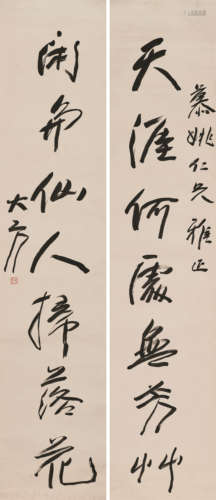 慕姚仁兄雅正
天涯何處無芳艸
閒與仙人掃落花
大方